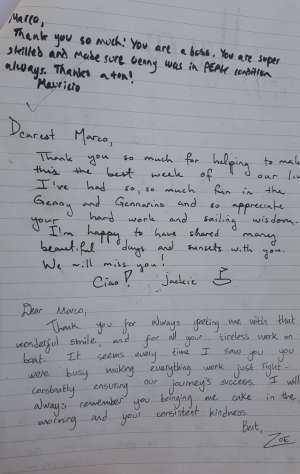 Marco,
Thank you so much! You are a boss. You are super
skilled and made sure Genny was in PEAK condition
always. Thanks a ton!
Mauricio
Dearest Marco,
Thank you so much for helping to make
this the best week of our
I've had so, so much fun in the
Genny and Gennarino and so appreciate
your hard work and sailing wisdom.
I'm happy to have shared many
beautiful days and sunsets with you.
We will miss you!
Ciao! Jackie
Dear Marco,
Thank you for always greeting me with that
wonderful smile, and for all your tireless work on
boat. It seems every time I saw you you
were busy making everything work just right -
constantly ensuring our journey's success. I will
always remember you bringing me cake in the
morning and your consistent kindness.
Best,
ZOE